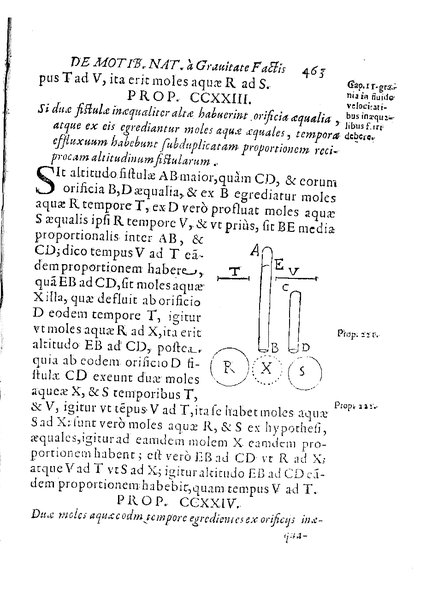 DE MOTIB. NAT. à Grauitate Factis 463
pus T ad V, ita erit moles aquæ R ad S.
PROP. CCXXIII.
Si duæ fistulæ inæqualiter altæ habuerint orificia æqualia,
atque ex eis egrediantur moles aquæ æquales, tempora
effluxuum habebunt subduplicatam proportionem reci-
procam altitudinum fistularum.
Cap. 11. gra-
uia in fluido
velocitati-
bus inæqua-
libus
debere.
SIt altitudo fistulæ AB maior, quàm CD, & eorum
orificia B, D æqualia, & ex B egrediatur moles
aquæ R tempore T, ex D verò profluat moles aquæ
S æqualis ipsi R tempore V, & vt priùs, sit BE media
proportionalis inter AB, &
CD; dico tempus V ad T eã-
dem proportionem habere,
quã EB ad CD, sit moles aquæ
X illa, quæ defluit ab orificio
D eodem tempore T, igitur
vt moles aquæ R ad X, ita erit
altitudo EB ad CD, postea
quia ab eodem orificio D fi-
stulæ CD exeunt duæ moles
aqueæ X, & S temporibus T,
A
E
T
V
C
B
D
R
X
S
Prop. 220.
& V, igitur vt tẽpus V ad T, ita se habet moles aquæ
S ad X: sunt verò moles aquæ R, & S ex hypothesi,
æquales, igitur ad eamdem molem X eamdem pro-
portionem habent; est verò EB ad CD vt R ad X;
atque V ad T vt S ad X; igitur altitudo EB ad CD eã-
dem proportionem habebit, quam tempus V ad T.
Prop. 221.
PROP. CCXXIV.
Duæ moles aquæ eodm tempore egredientes ex orificijs inæ-
qua-